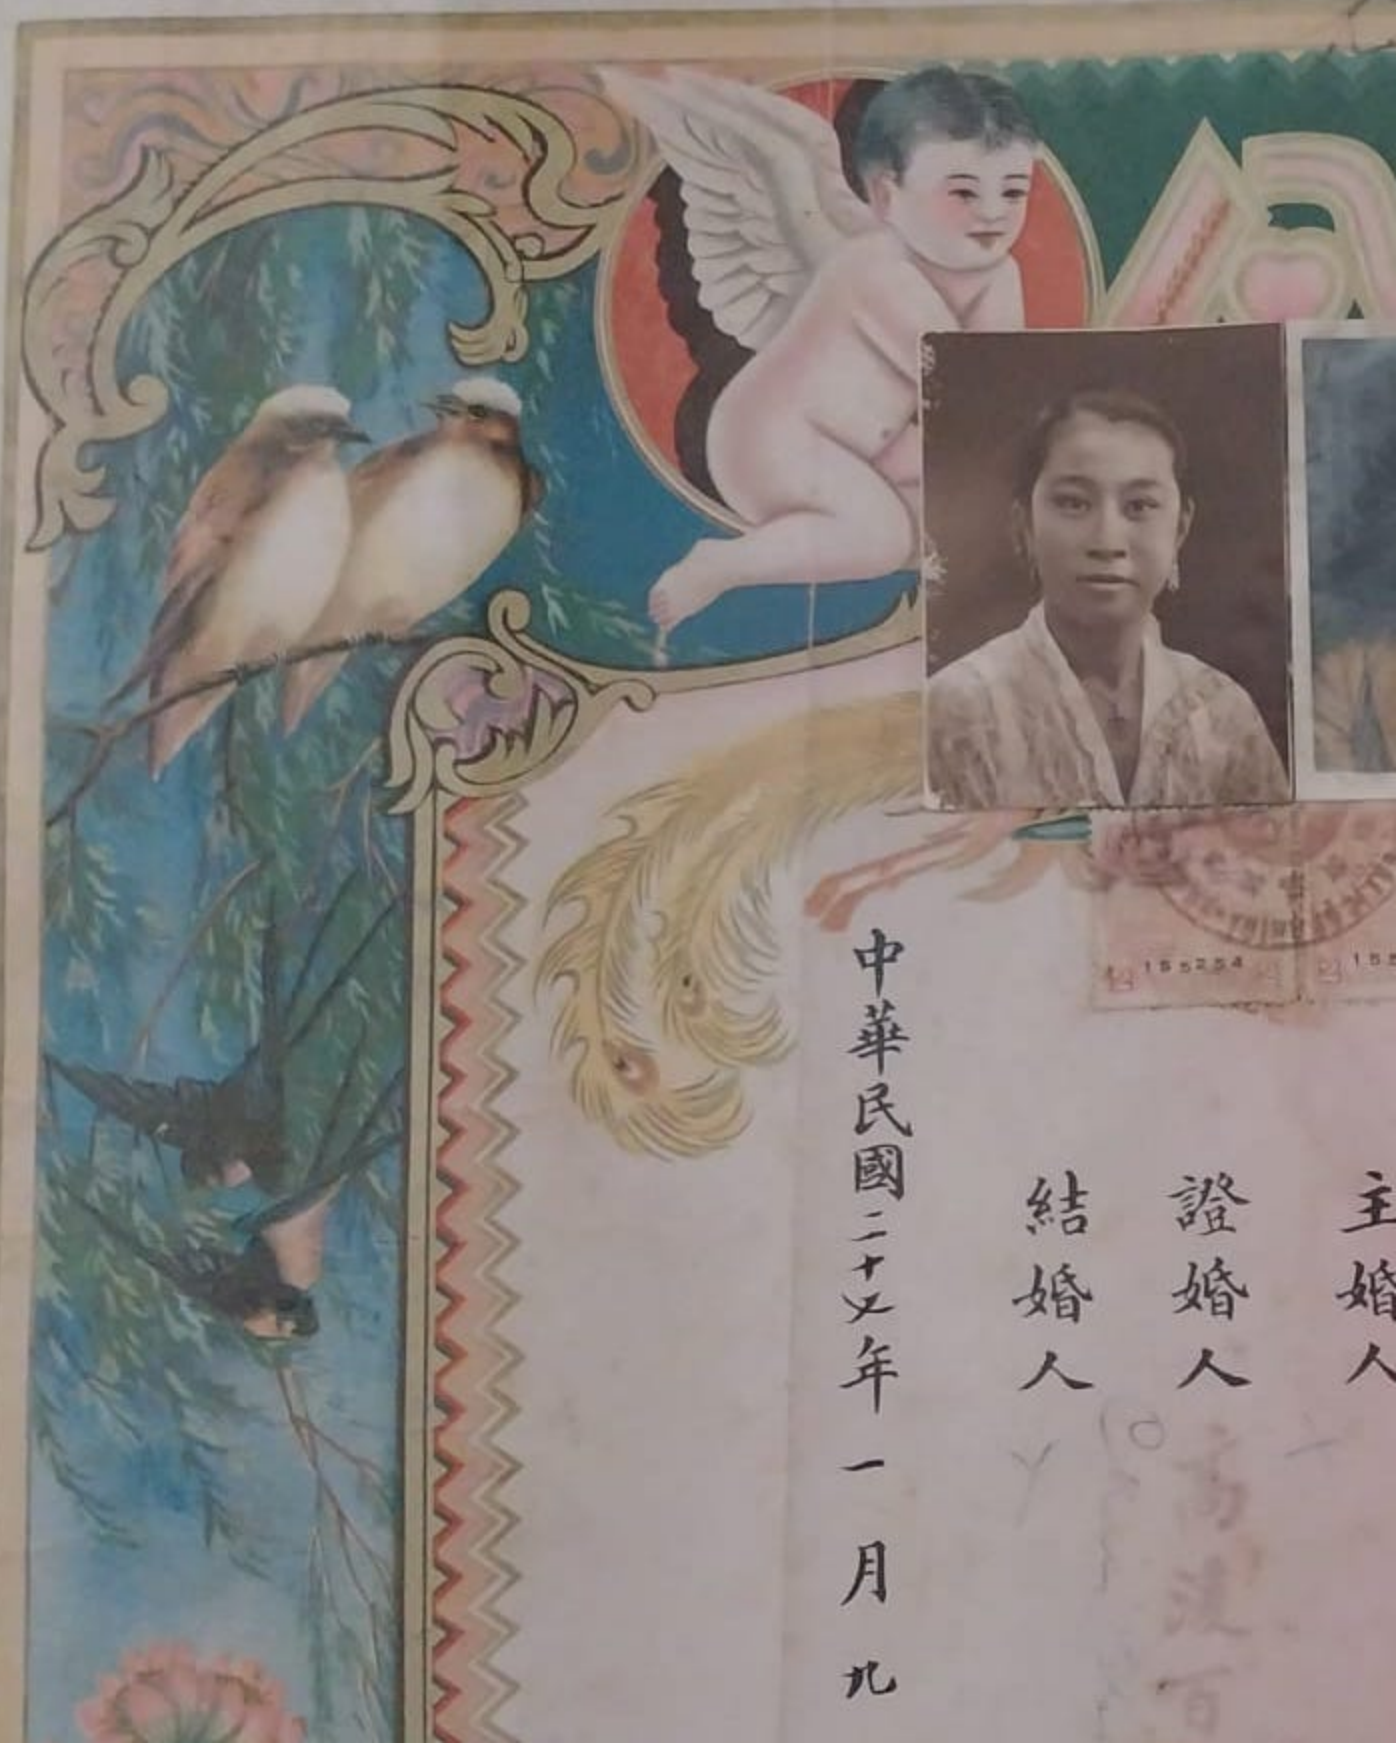 155254
主婚人
證婚人
高凌百
結婚人
中華民國二十 年一月